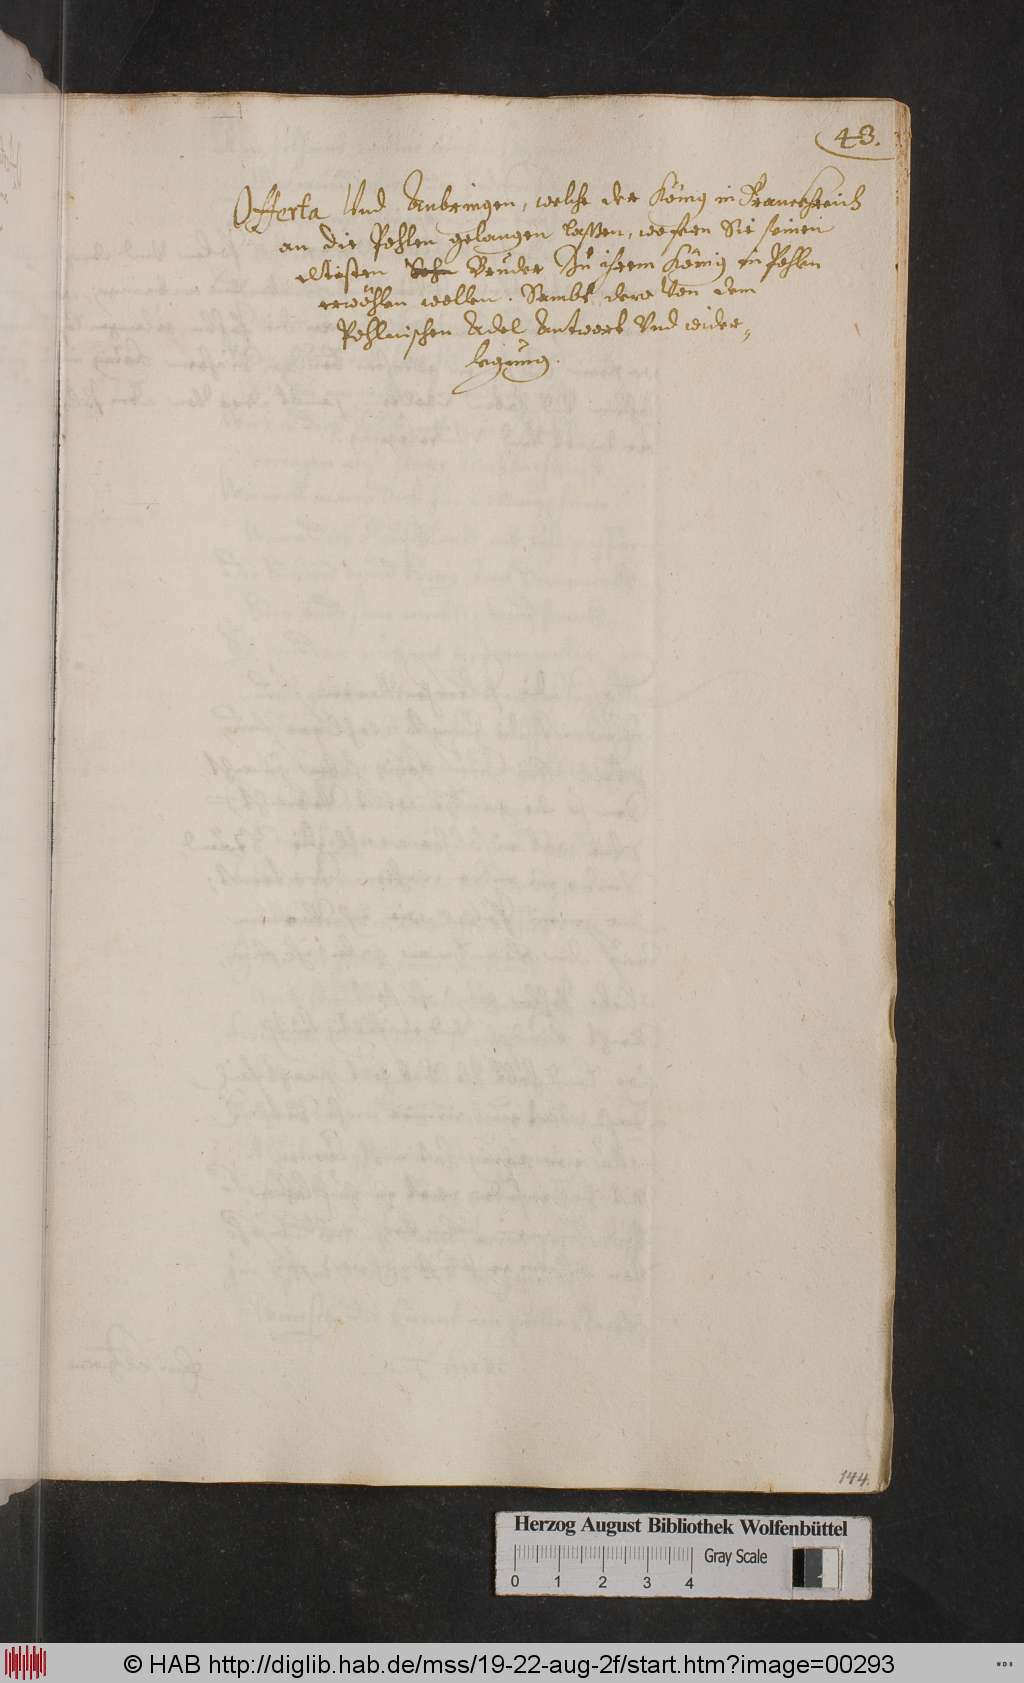 43.
Offerta Vnd Anbringen, welche der König in Franckreich
an die Pohlen gelangen laßen, wofern Sie seinen
eltisten Sohn Bruder Zu ihrem König in Pohlen
erwöhlen wollen. Sambt dero Von dem
Pohlnischen Adel Antwort Vnd wider„
legung.
144.
Herzog August Bibliothek Wolfenbüttel
Gray Scale
0 1 2 3 4
© HAB http://diglib.hab.de/mss/19-22-aug-2f/start.htm?image=00293